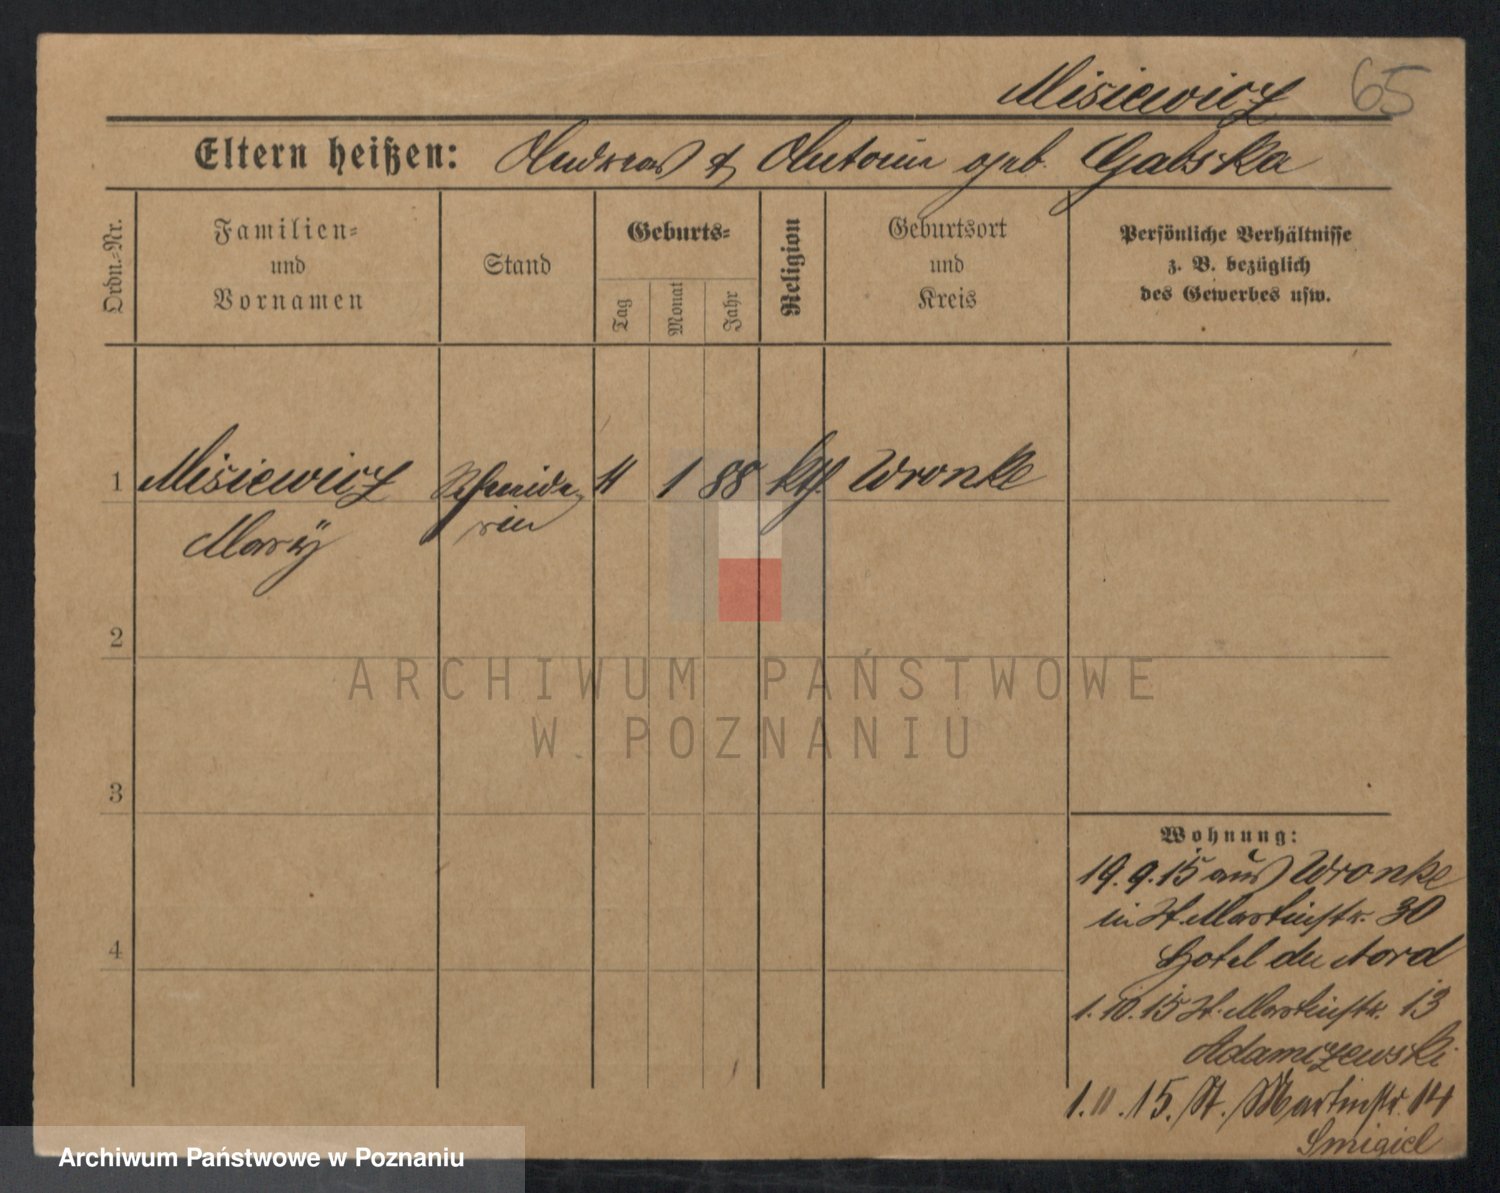 Misiewicz 65
Eltern heißen: Andreas & Antonin geb. Gabska
Ordn.-Nr.
Familien-
und
Vornamen
Stand
Geburts-
Tag
Monat
Jahr
Religion
Geburtsort
und
Kreis
Persönliche Verhältnisse
z. B. bezüglich
des Gewerbes usw.
1 Misiewicz Schneide- 1 88 kth. Wronke
Mary rin
2
3
4
Wohnung:
19.9.15 aus Wronke
in St. Martinstr. 30
Hotel du Nord
1.10.15 St. Martinstr. 13
Adamczewski
1.11.15. St. Martinstr. 14
Smigiel
ARCHIWUM PAŃSTWOWE
W POZNANIU
Archiwum Państwowe w Poznaniu